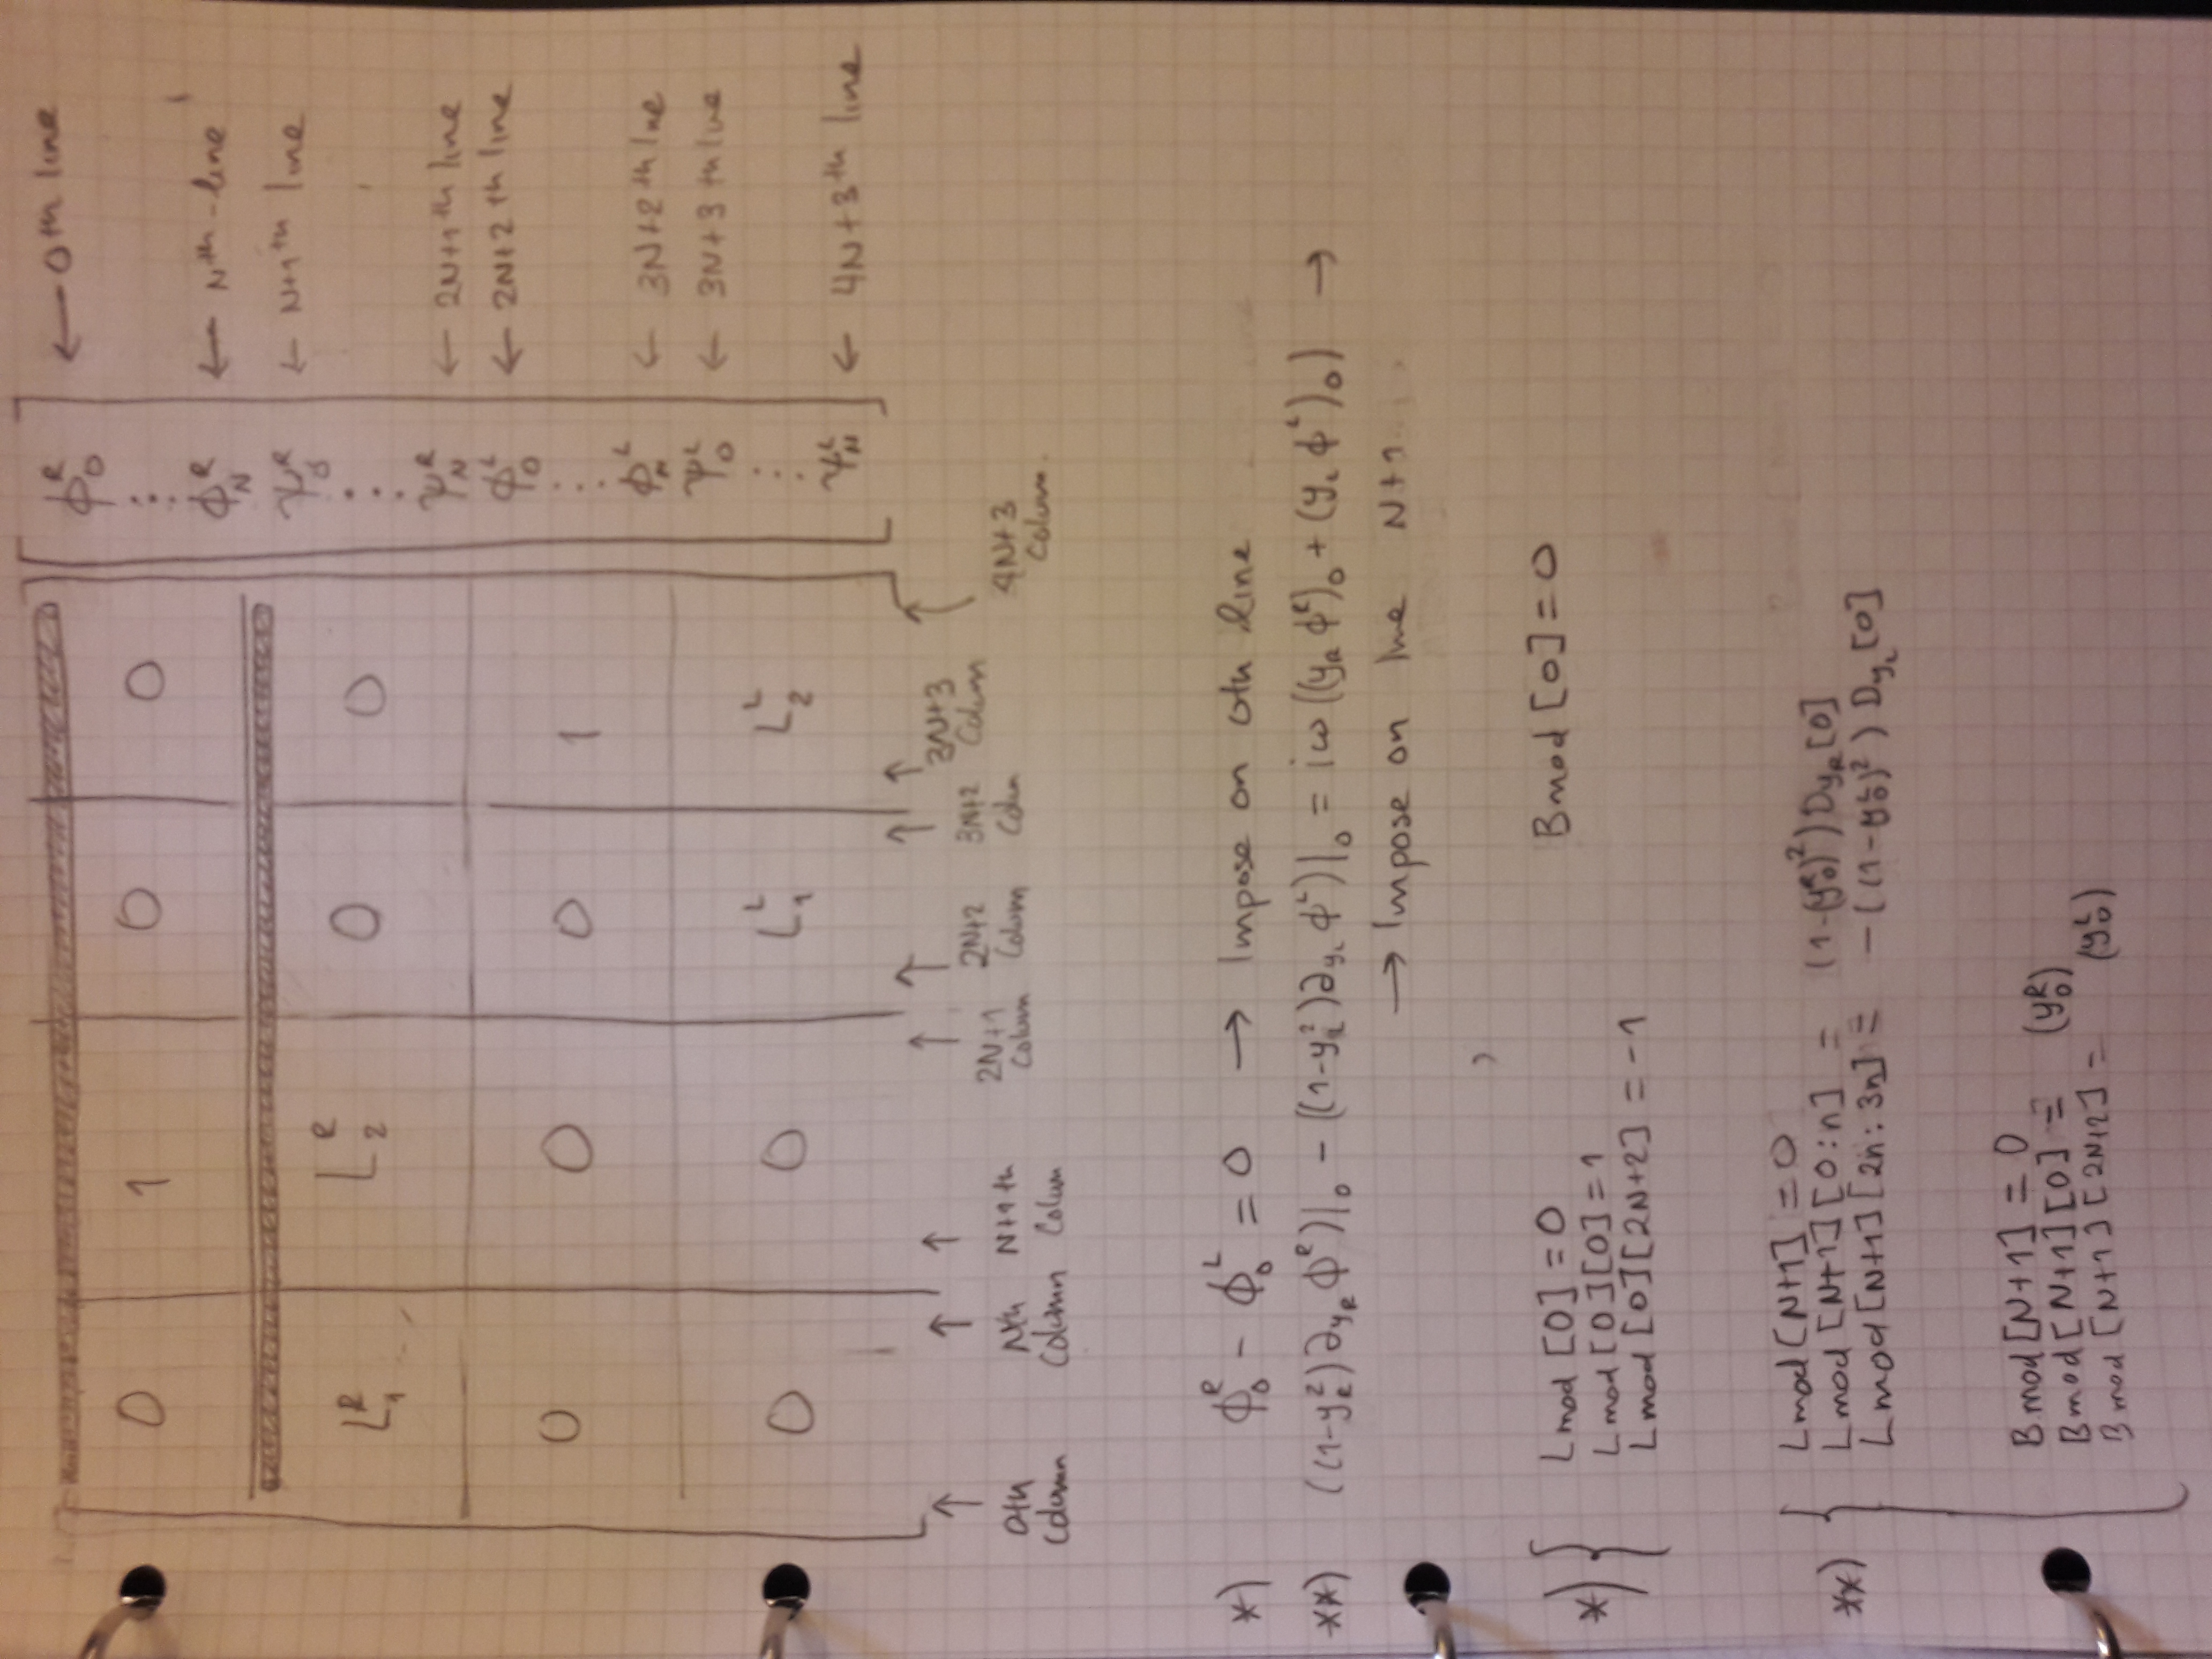 ϕ₀ᴿ ← 0th line
0 1 0 0
⋮
ϕ_N^R ← Nth-line
ψ₀ᴿ ← N+1th line
L₁ᴿ L₂ᴿ 0 0
⋮
ψ_N^R ← 2N+1th line
ϕ₀ᴸ ← 2N+2th line
0 0 0 1
⋮
ϕ_n^L ← 3N+2th lne
ψ₀ᴸ ← 3N+3th lne
0 0 L₁ᴸ L₂ᴸ
⋮
ψ_N^L ← 4N+3th line
↑ ↑ ↑ ↑ ↑ ↑ ↑ ↑
0th Column
Nth Column
N+1th Colum
2N+1 Colum
2N+2 Column
3N+2 Colum
3N+3 Column
4N+3 Column.
*) ϕ₀ᴿ - ϕ₀ᴸ = 0 → Impose on 0th line
**) ((1-y_R²)∂_{y_R} ϕ^R)|₀ - ((1-y_L²)∂_{y_L} ϕ^L)|₀ = iω((y_R ϕ^R)₀ + (y_L ϕ^L)₀) →
→ Impose on line N+1
*) { Lmod [0] = 0 Bmod [0] = 0
Lmod [0][0] = 1
Lmod [0][2N+2] = -1
**) { Lmod [N+1] = 0
Lmod [N+1][0:n] = (1-(y₀ᴿ)²) D_{y_R}[0]
Lmod [N+1][2n:3n] = -((1-y₀ᴸ)²) D_{y_L}[0]
Bmod [N+1] = 0
Bmod [N+1][0] = (y₀ᴿ)
Bmod [N+1][2N+2] = (y₀ᴸ)